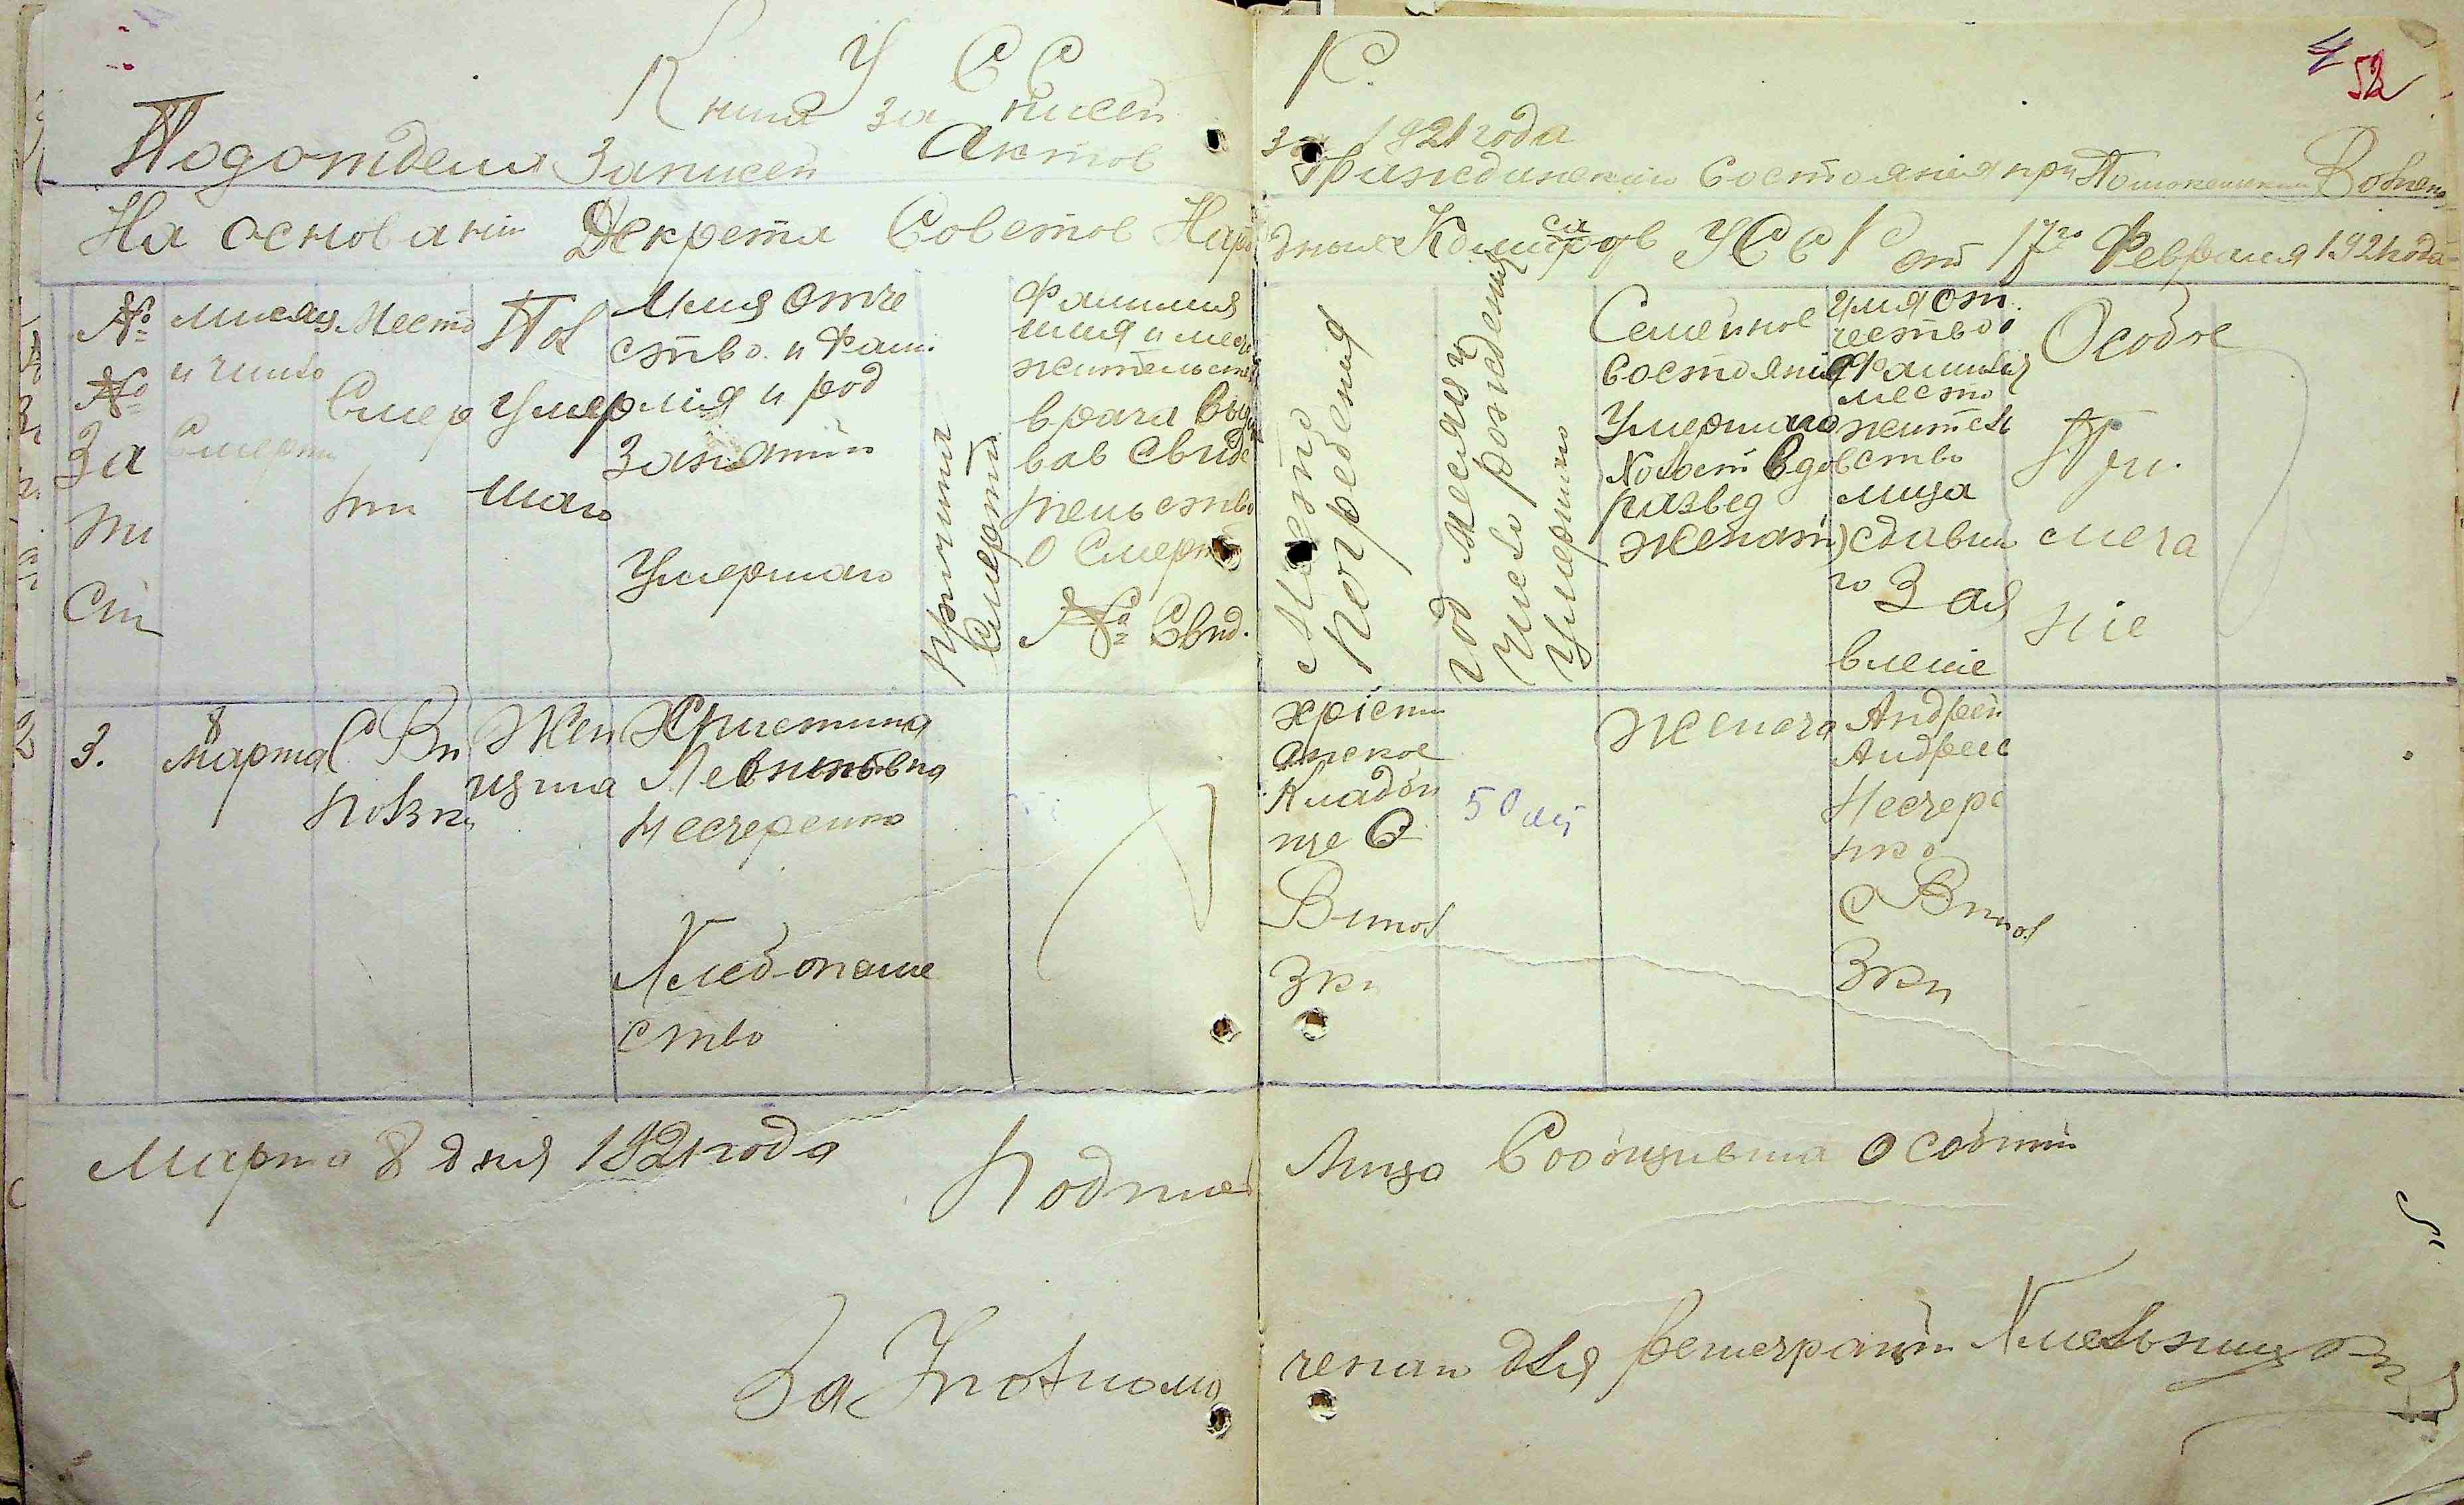 У С С Р.
Книга записей за 1921 года
4
52
Подотдела Записей Актов Гражданскаго Состояния при
На основании Декрета Советов Народных Комисаров УССР от 17го Февраля 1921 года
№
№
За
пи
си
месяц
и число
Смерти
Место
Смер
ти
Пол
Умер
шаго
Имя отче
ство и Фам.
лия и род
Занятий
Умершаго
Причина
Смерти
Фамилия
имя и место
жительства
врача выда
вав свиде
тельство
о Смерти
№ Свид.
Место
погребения
год месяц и
Число рождения
Умершаго
Семейное
состояние
Умершаго
Холост вдов
развед
женат)
имя от
чество
Фамилия
место
жител
ство
лица
сдавша
го Зая
вление
Особое
При
меча
ніе
3.
8
марта
С Ви
повзки
Жен
щина
Христина
Нечеренко
Хлебопаше
ство
хрісти
анское
Кладби
ще С
Витов
зки
50 лет
женота
Андрей
Андреев
Нечере
нко
С Витов
Зки
Марта 8 дня 1921 года
Подпись Лица Сообщивша о событии
За Уполномоченаго для регистрации